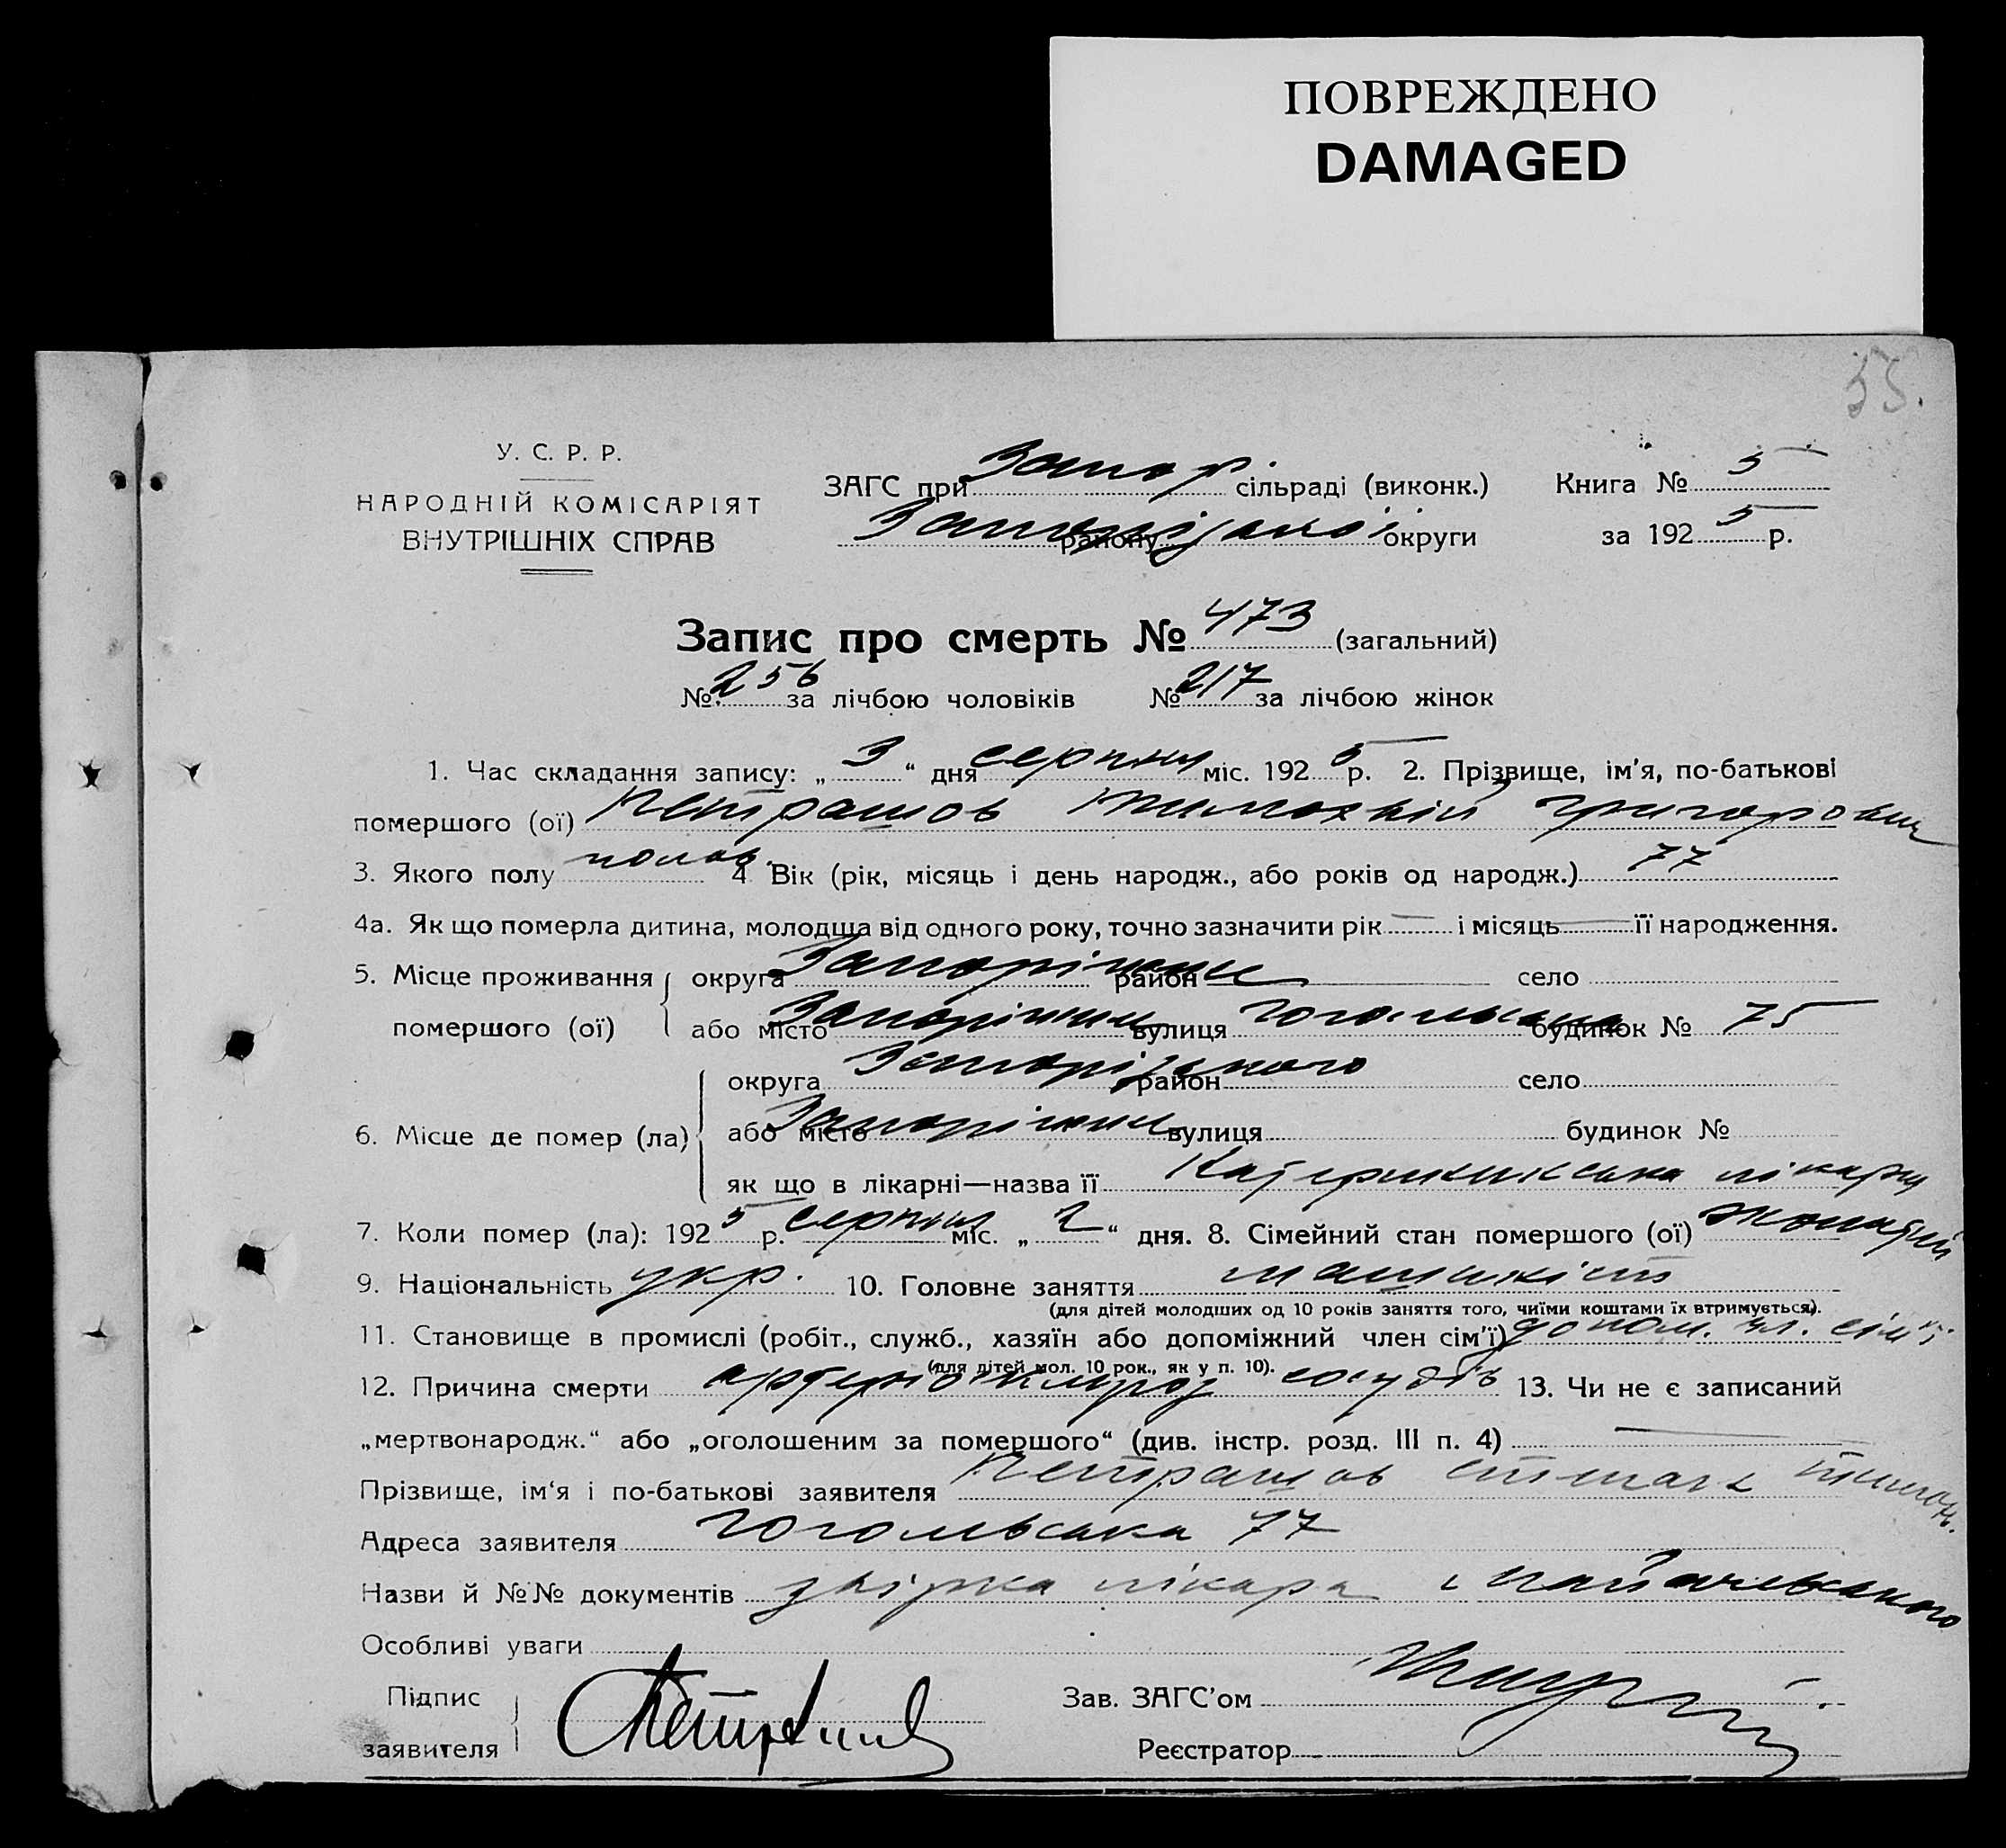 ПОВРЕЖДЕНО
DAMAGED
55.
У. С. Р. Р.
НАРОДНІЙ КОМІСАРІЯТ
ВНУТРІШНІХ СПРАВ
ЗАГС при Запор сільраді (виконк.) Книга № 5
району Запорізької округи за 1925 р.
Запис про смерть № 473 (загальний)
№ 256 за лічбою чоловіків № 217 за лічбою жінок
1. Час складання запису: „ 3 “ дня серпня міс. 1925 р. 2. Прізвище, ім'я, по-батькові
помершого (ої) Петрашов Тимохвій Григорович
3. Якого полу чолов. 4 Вік (рік, місяць і день народж., або років од народж.) 77
4а. Як що померла дитина, молодша від одного року, точно зазначити рік — і місяць — її народження.
5. Місце проживання округа Запоріжже район — село
помершого (ої) або місто Запоріжже вулиця Гогольська будинок № 75
округа Запорізького район село
6. Місце де помер (ла) або місто Запоріжже вулиця будинок №
як що в лікарні—назва її Катерининська лікарня
7. Коли помер (ла): 1925 р. серпня міс. „ 2 “ дня. 8. Сімейний стан помершого (ої) жонатий
9. Національність укр. 10. Головне заняття машиніст
(для дітей молодших од 10 років заняття того, чиїми коштами їх втримується).
11. Становище в промислі (робіт., служб., хазяїн або допоміжний член сім'ї) допом. чл. сім'ї
(для дітей мол. 10 рок., як у п. 10).
12. Причина смерти артериосклероз сосудів 13. Чи не є записаний
„мертвонародж.“ або „оголошеним за помершого“ (див. інстр. розд. III п. 4) —
Прізвище, ім‘я і по-батькові заявителя Петрашов Степан Тимох.
Адреса заявителя Гогольська 77
Назви й №№ документів довідка лікара
Особливі уваги
Підпис Зав. ЗАГС'ом
заявителя Реєстратор